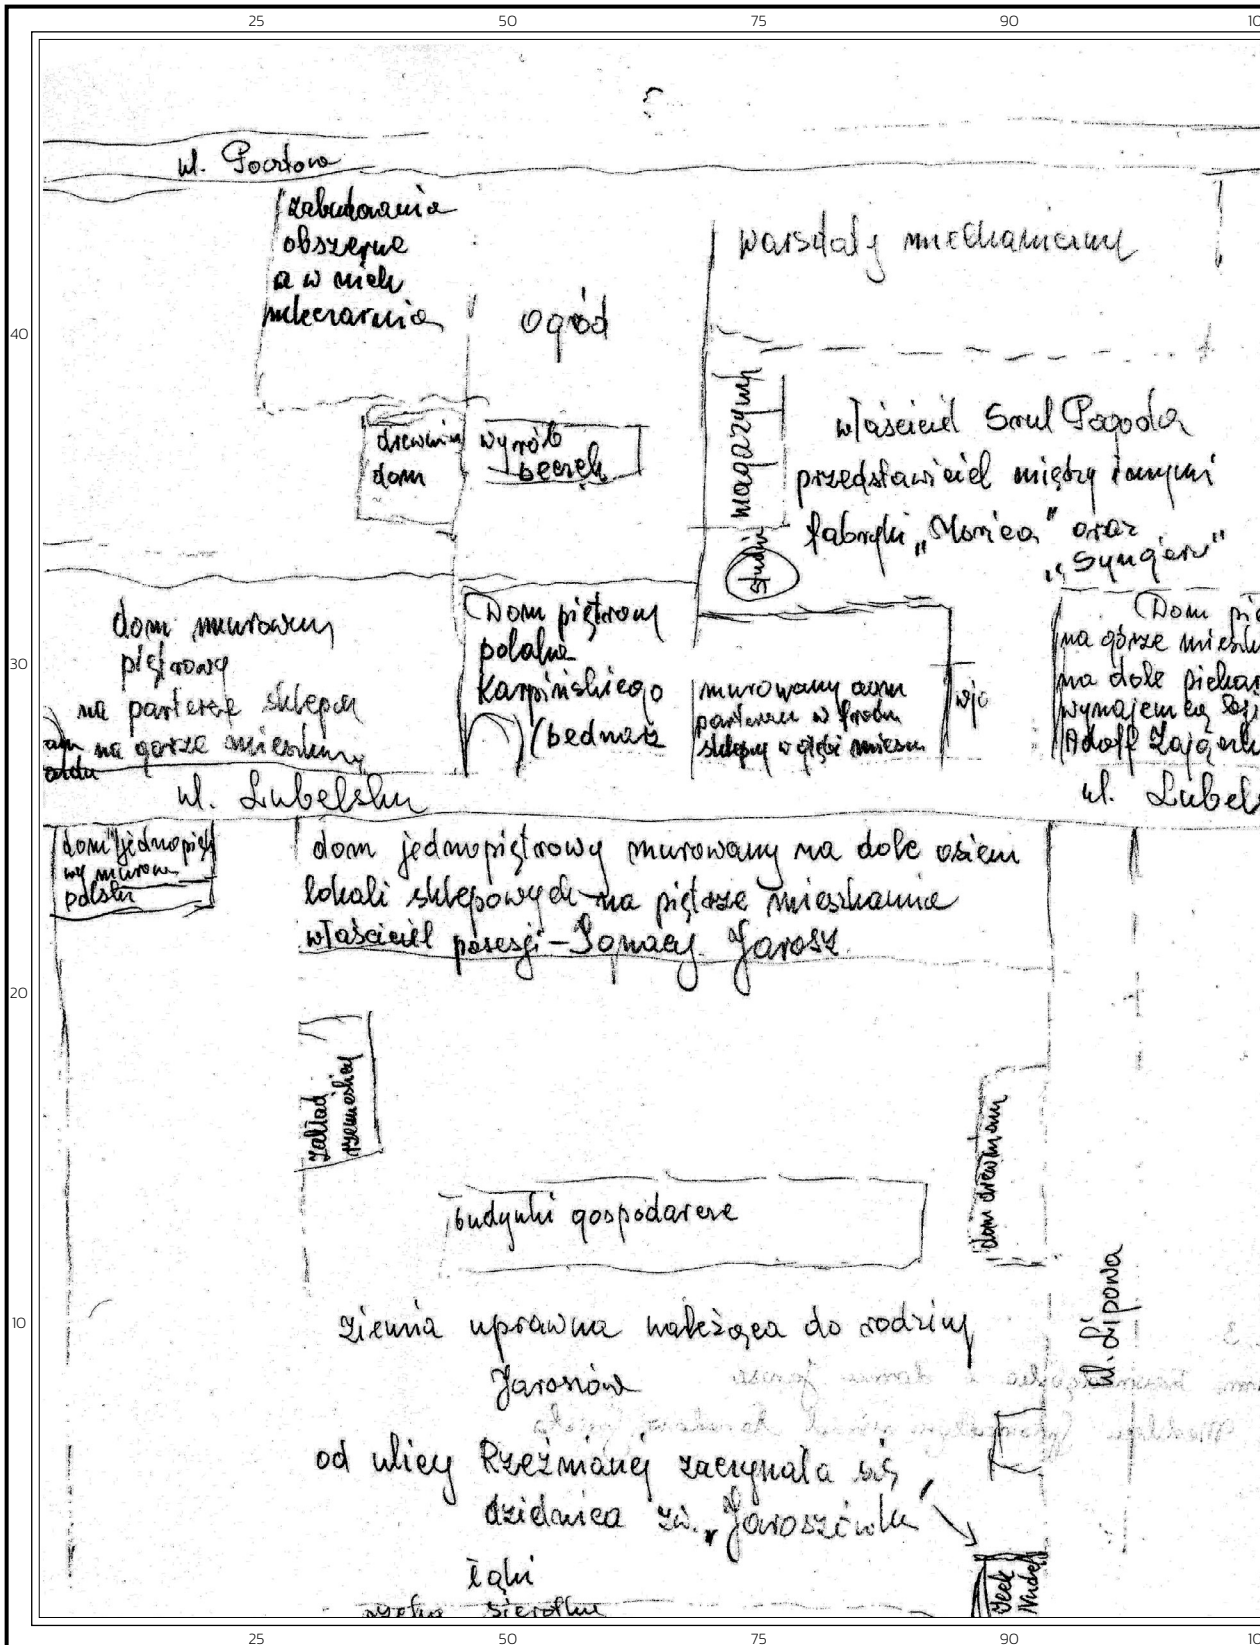 25 50 75 90
ul. Pocztowa
zabudowania
obszerne
a w nich
mleczarnia
ogród
warsztaty mechaniczny
40
magazyny
właściciel Srul Pogoda
przedstawiciel między innymi
fabryki „Monica" oraz
„Syngera"
drewnian
dom
wyrób
beczek
studnia
30
dom murowany
piętrowy
na parterze sklepy
na gorze mieszkan
Dom piętrowy
polaka
Karpińskiego
(bednarz
murowany dom
parterowy w frontu
sklepy w głębi mieszk
wjo
Dom pię
na górze mieszka
na dole piekar
wynajem
Adolf Zając
ul. Lubelska
ul. Lubels
dom jednopięt
wy murow
polski
dom jednopiętrowy murowany na dole osiem
lokali sklepowych na piętrze mieszkania
właściciel posesji - Ignacy Jarosz
20
zakład
rzemieślniczy
dom drewniany
budynki gospodarcze
10
ul. Lipowa
ziemia uprawna należąca do rodziny
Jaroszów
od ulicy Rzeźnianej zaczynała się
dzielnica zw. „Jaroszówka
łąki
rzeka Sierotka
Icek
Nudel
25 50 75 90